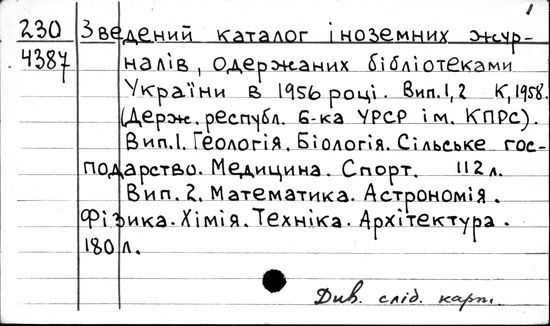 1
230 Зведений каталог іноземних жур-
4387 налів, одержаних бібліотеками
України в 1956 році. Вип. 1, 2 К, 1958.
(Держ. республ. б-ка УРСР ім. КПРС).
Вип. 1. Геологія. Біологія. Сільське гос-
подарство. Медицина. Спорт. 112 л.
Вип. 2. Математика. Астрономія.
Фізика. Хімія. Техніка. Архітектура.
180 л.
Див. слід. карт.